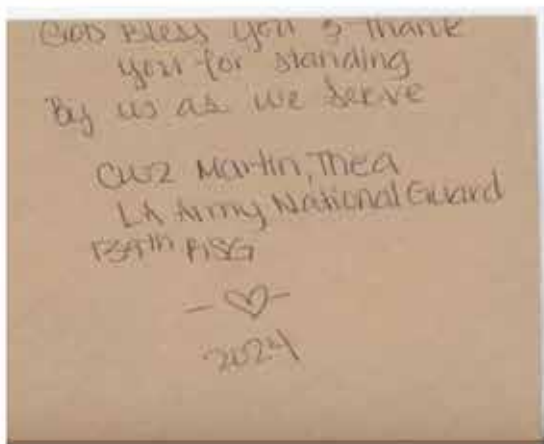 GOD Bless you & thank
you for standing
By us as we serve
CW2 Martin, Thea
LA Army National Guard
139th RSG
- ♡ -
2024